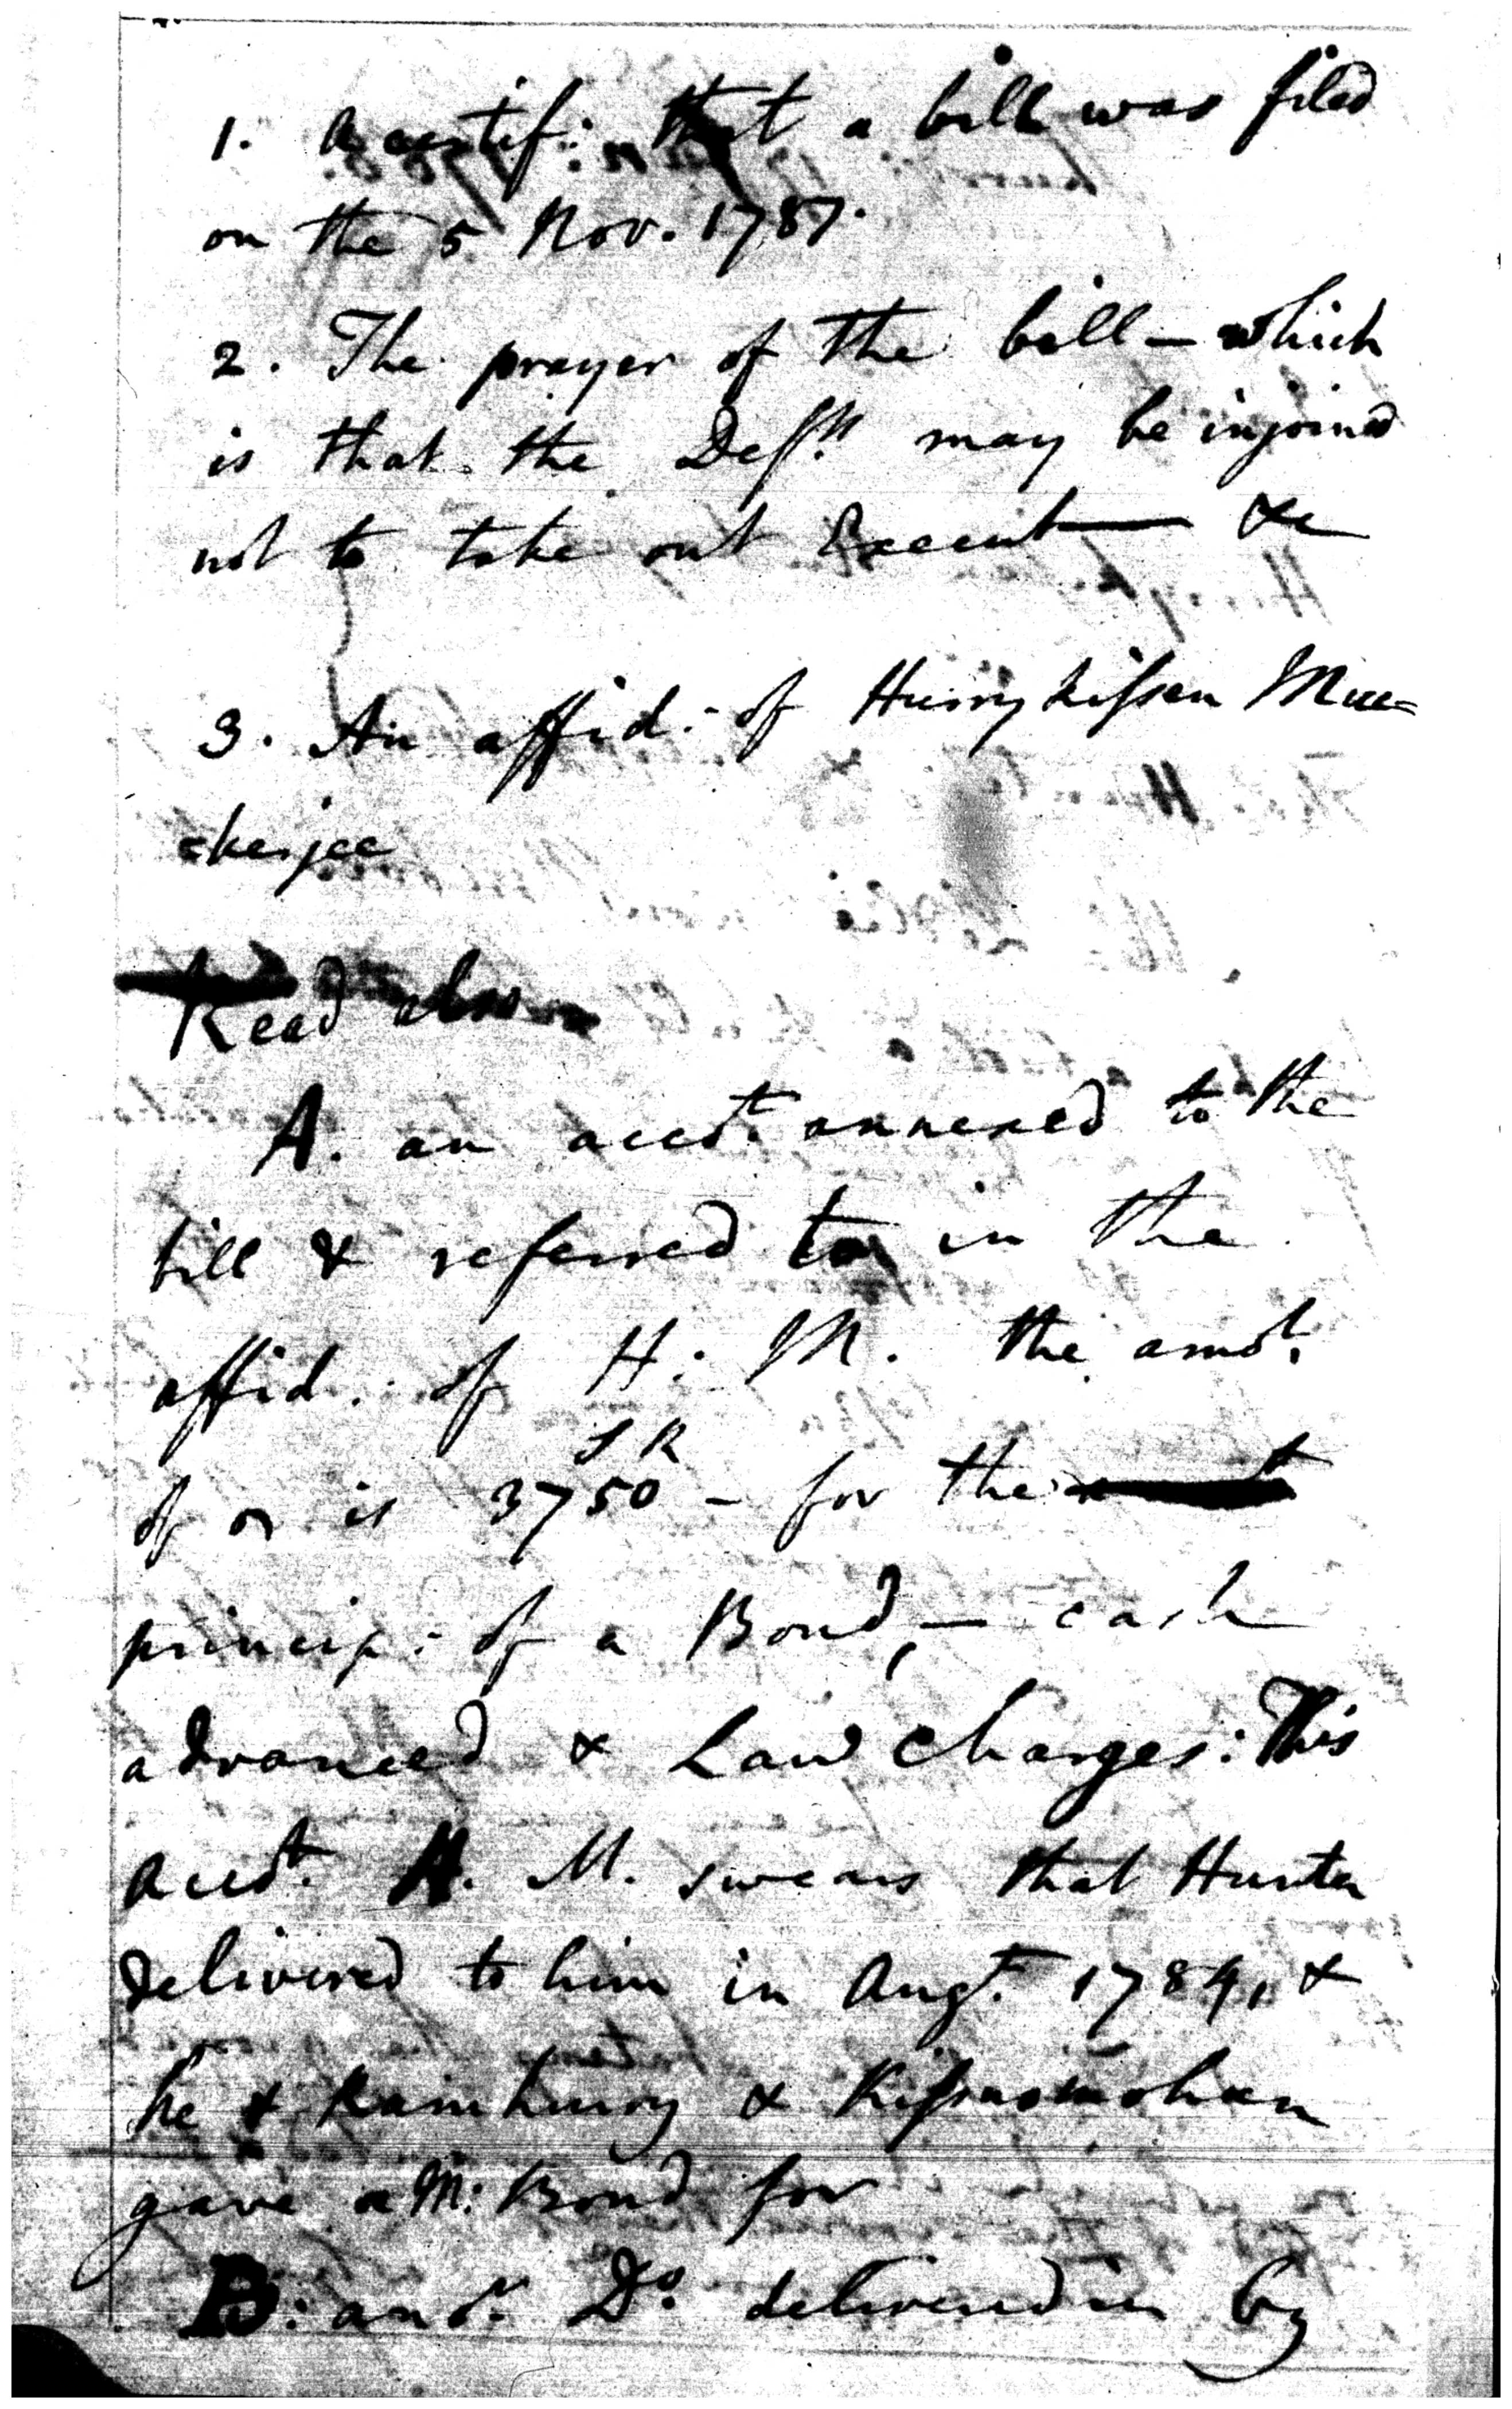 1. A certif: that a bill was filed
on the 5 Nov. 1787.
2. The prayer of the bill – which
is that the Def.ts may be injoined
not to take out Execut— &c
3. An affid: of Hurrykissen Muc=
=kerjee
Read also
A. an acct. annexed to the
bill & referred to in the
affid: of H: M. the amot.
of is 3750 SR – for the
princip: of a Bond, — cash
advanced & Law Charges: This
acct. H. M. swears that Hunter
delivered to him in Augt. 1784, &
he & Ramhurry & Kissnomohun
gave a M: Bond for
B: anor. Do. delivered in by